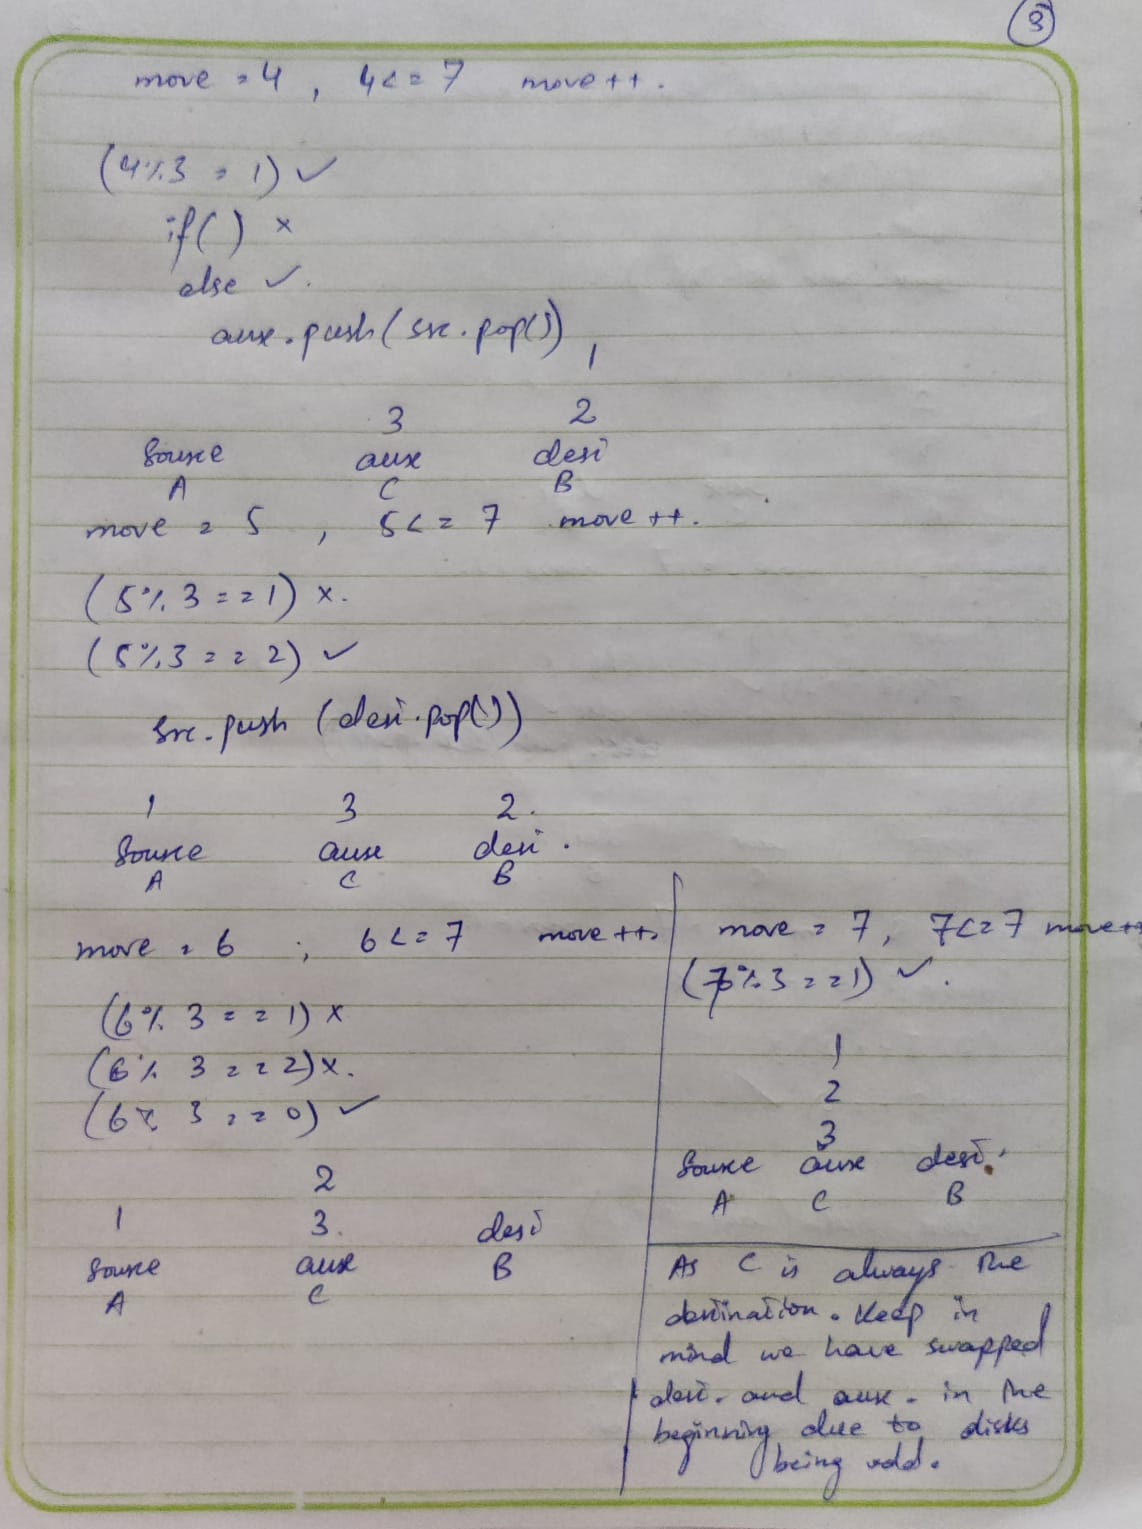 3
move = 4 , 4<=7 move++.
(4%3 = 1) ✓
if( ) ×
else ✓.
aux.push(src.pop())
1
3 2
Source aux desti
A C B
move = 5 , 5<=7 move++.
(5%3==1) ×.
(5%3==2) ✓
src.push (desti.pop())
1 3 2.
Source aux desti.
A C B
move = 6 , 6<=7 move++.
(6%3==1) ×
(6%3==2) ×.
(6%3==0) ✓
2
1 3. desti
Source aux B
A C
move = 7, 7<=7 move++
(7%3==1) ✓.
1
2
3
Source aux desti.
A C B
As C is always the
destination. Keep in
mind we have swapped
desti. and aux. in the
beginning due to disks
being odd.